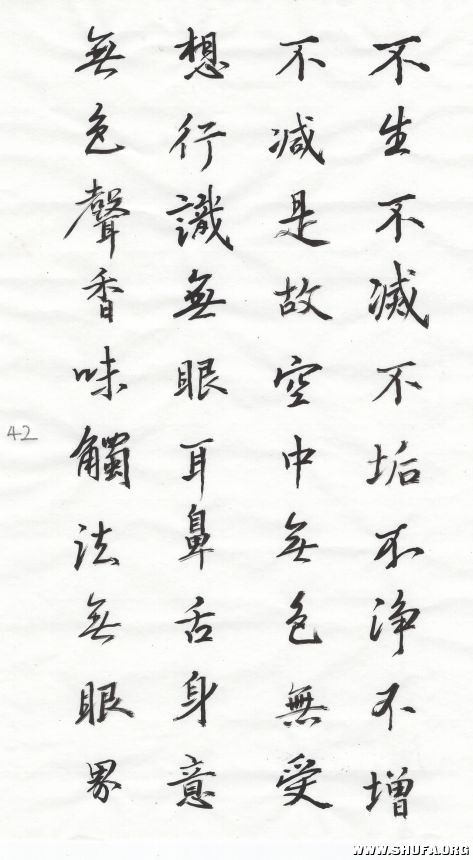 不生不滅不垢不淨不增
不减是故空中無色無受
想行識無眼耳鼻舌身意
無色聲香味觸法無眼界
42
WWW.SHUFA.ORG